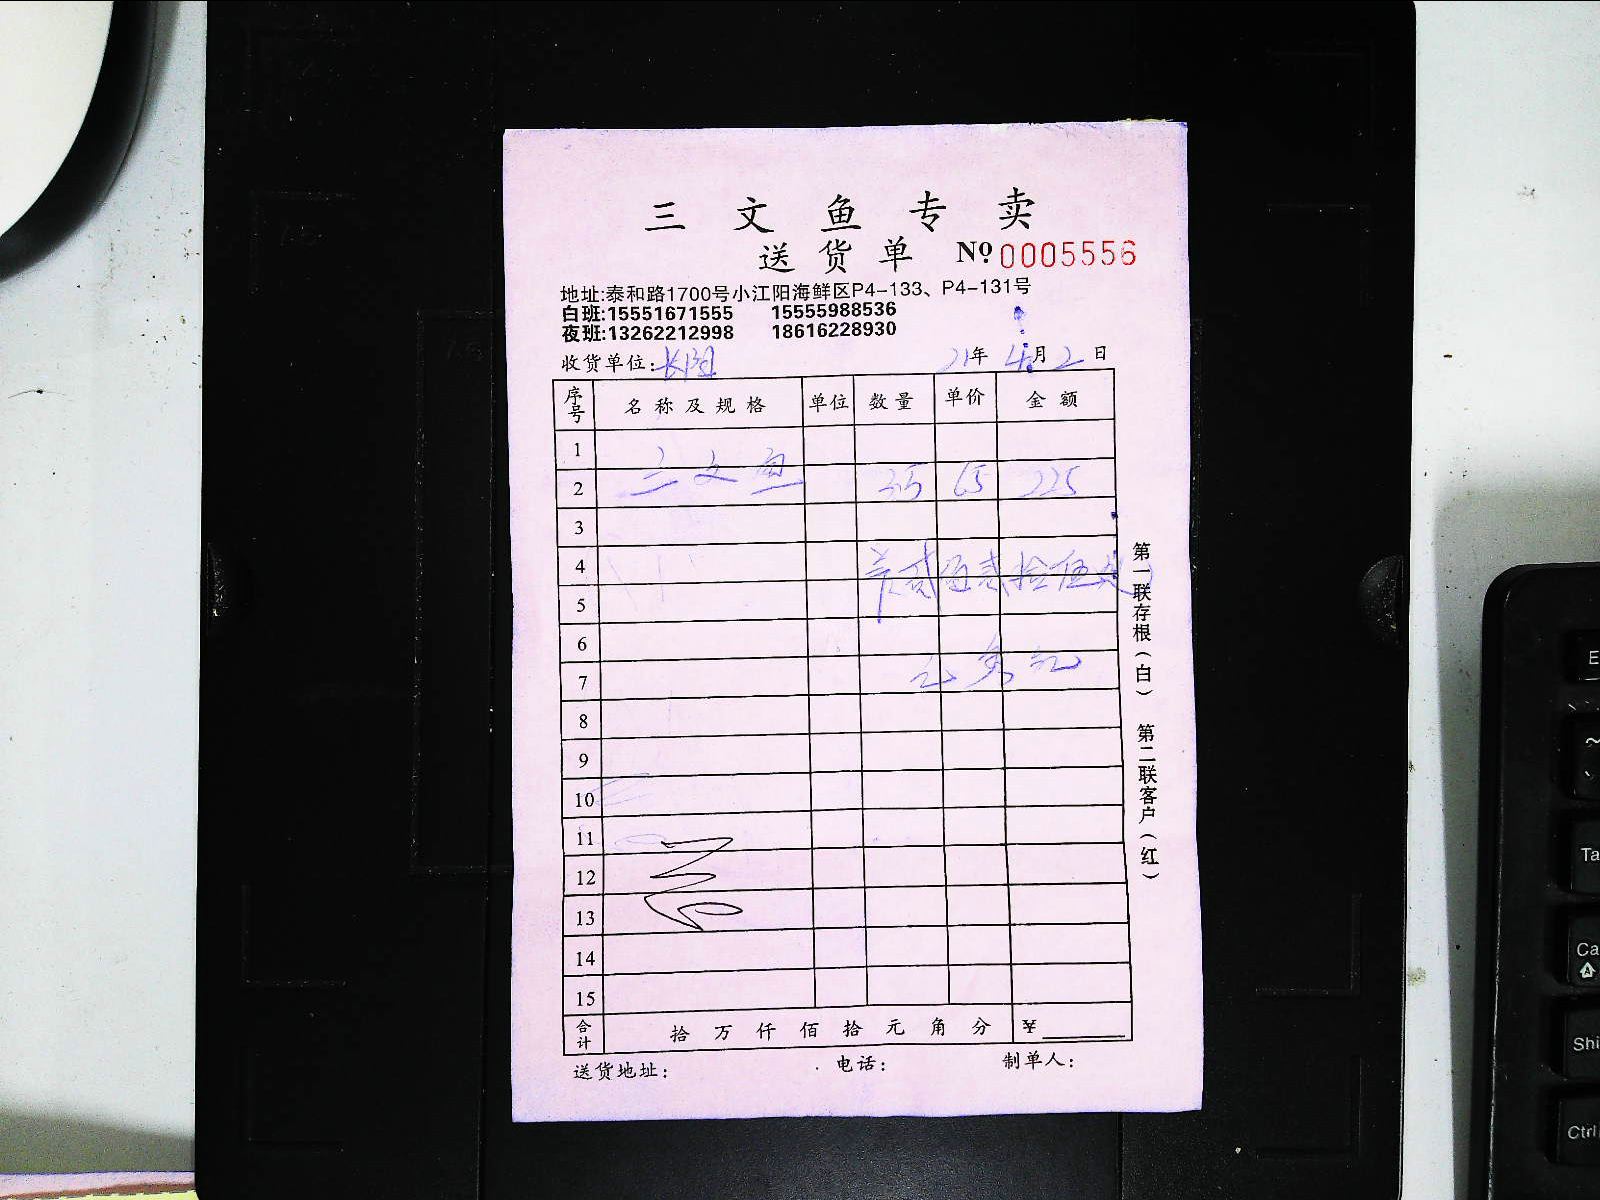 三文鱼专卖
送货单 № 0005556
地址:泰和路1700号小江阳海鲜区P4-133、P4-131号
白班:15551671555 15555988536
夜班:13262212998 18616228930
收货单位: 长阳 21年4月2日
序号 名称及规格 单位 数量 单价 金额
1
2 三文鱼 3.5 65 225
3
4
5
6
7
8
9
10
11
12
13
14
15
合计 拾万仟佰拾元角分 ¥
送货地址: 电话: 制单人:
第一联存根(白) 第二联客户(红)
E
Ta
Ca
Shi
Ctrl